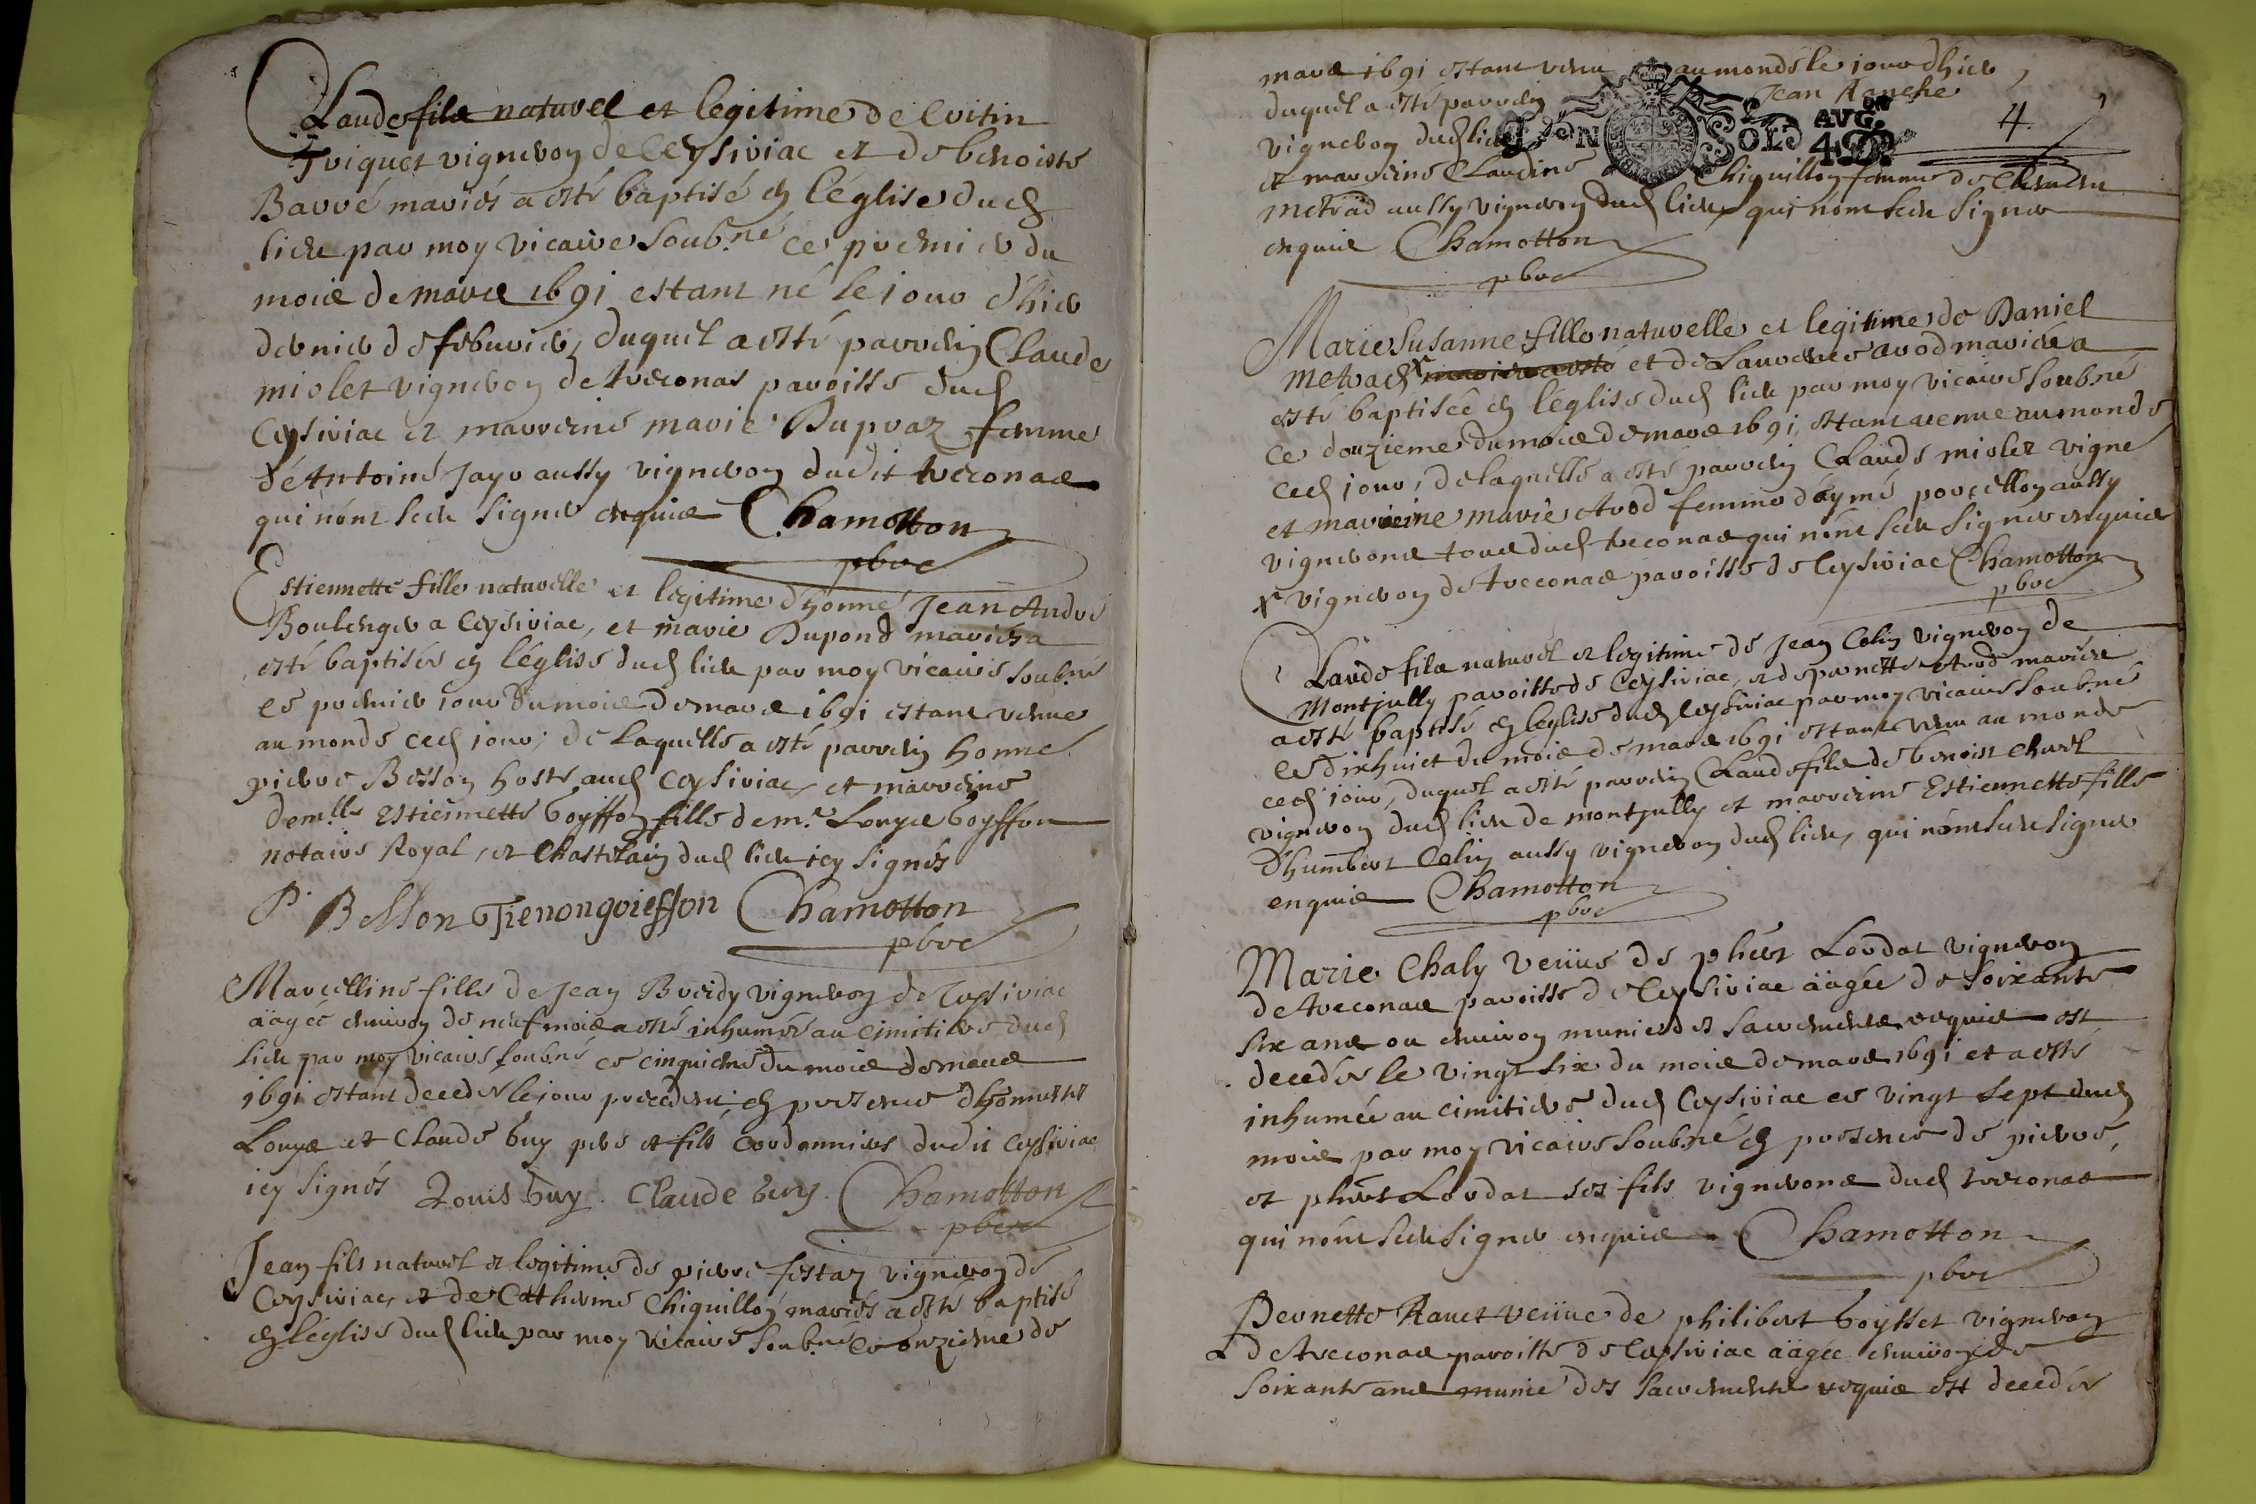 Claude fils naturel et legitime de
Triquet vigneron de Ceysiriac et de benoiste
Barré mariés a esté baptisé en l'église dud.
lieu par moy vicaire soub.né ce premier du
mois de mars 1691 estant né le jour d'hier
dernier de febvrier, duquel a esté parrein Claude
miolet vigneron de treconas paroisse dud.
Ceysiriac et marreine marie Dupraz femme
de Antoine Jayr aussy vigneron dudit treconas
qui n'ont sceu signer enquis Chamotton
pbre
Estiennette fille naturelle et legitime d'honné Jean André
Boulenger a Ceysiriac, et marie Dupond mariés a
esté baptisée en l'église dud. lieu par moy vicaire soub.né
ce premier jour du mois de mars 1691 estant venue
au monde ced. jour, de laquelle a esté parrein honné
pierre Besson hoste aud. Ceysiriac, et marreine
dem.lle Estiennette Goyffon fille de m.e Louys Goyffon
notaire Royal, et Chastelain dud. lieu icy signés
P. Besson Tienon goieffon Chamotton
pbre
Marcelline fille de Jean Breidy vigneron de Ceysiriac
aägée environ de neuf mois a esté inhumée au cimitiere dud.
lieu par moy vicaire soubné ce cinquieme du mois de mars
1691 estant decedée le jour precedent, en presence d'honnestes
Louys et Claude Guy pere et fils cordonniers dudit Ceysiriac
icy signés Louis Guy. Claude Guy. Chamotton
pbre
Jean fils naturel et legitime de pierre festaz vigneron de
Ceysiriac, et de Catherine Chiquillon mariés a esté baptisé
en l'église dud. lieu par moy vicaire soub.né ce onzieme de
mars 1691 estant venu au monde le jour d'hier
duquel a esté parrein Jean Ranche
vigneron dud. lieu
GEN DIJON SOLS 4 D.
4.
et marreine Claudine Chiquillon femme de
metrad aussy vigneron dud. lieu qui n'ont sceu signer
enquis Chamotton
pbre
Marie Susanne fille naturelle et legitime de Daniel
metrad x et de Laurence avod mariés a
esté baptisée en l'église dud. lieu par moy vicaire soubné
ce douzieme du mois de mars 1691, estant venue au monde
ced. jour, de laquelle a esté parrein Claude miolet vigne
et marreine marie Avod femme d'aymé porcellon aussy
vignerons tous dud. treconas qui n'ont sceu signer enquis
x vigneron de treconas paroisse de Ceysiriac Chamotton
pbre
Claude fils naturel et legitime de Jean Colin vigneron de
Montjully paroisse de Ceysiriac, et de pernette Avod mariés
a esté baptisé en l'église dud. Ceysiriac par moy vicaire soub.né
ce dixhuict du mois de mars 1691 estant venu au monde
ced. jour, duquel a esté parrein Claude fils de benoist
vigneron dud. lieu de montjully et marreine Estiennette fille
d'humbert Colin aussy vigneron dud. lieu, qui n'ont sceu signer
enquis Chamotton
pbre
Marie Chaly veuve de phêrt Lordat vigneron
de treconas paroisse de Ceysiriac aägée de soixante
six ans ou environ munie des sacrements requis est
decedée le vingt six du mois de mars 1691 et a esté
inhumée au cimitiere dud. Ceysiriac ce vingt sept dud.
mois par moy vicaire soubné en presence de pierre,
et phêrt Lordat ses fils vignerons dud. treconas
qui n'ont sceu signer enquis Chamotton
pbre
Pernette Ravet veuve de philibert Goysset vigneron
de treconas paroisse de Ceysiriac aägée environ de
soixante ans munie des sacrements requis est decedée